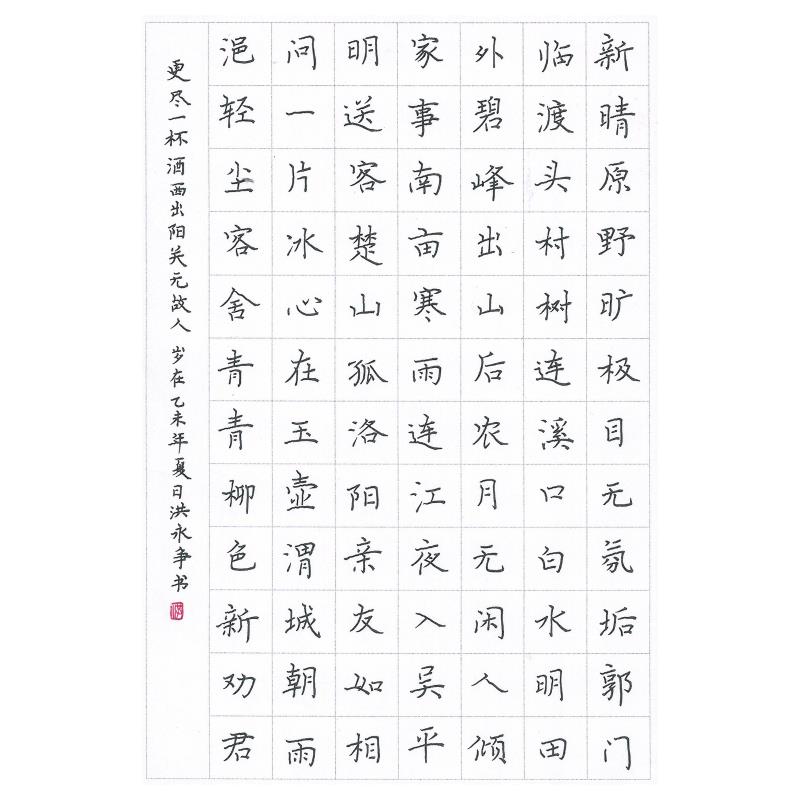 新晴原野旷极目无氛垢郭门
临渡头村树连溪口白水明田
外碧峰出山后农月无闲人倾
家事南亩寒雨连江夜入吴平
明送客楚山孤洛阳亲友如相
问一片冰心在玉壶渭城朝雨
浥轻尘客舍青青柳色新劝君
更尽一杯酒西出阳关无故人 岁在乙未年夏日洪永争书